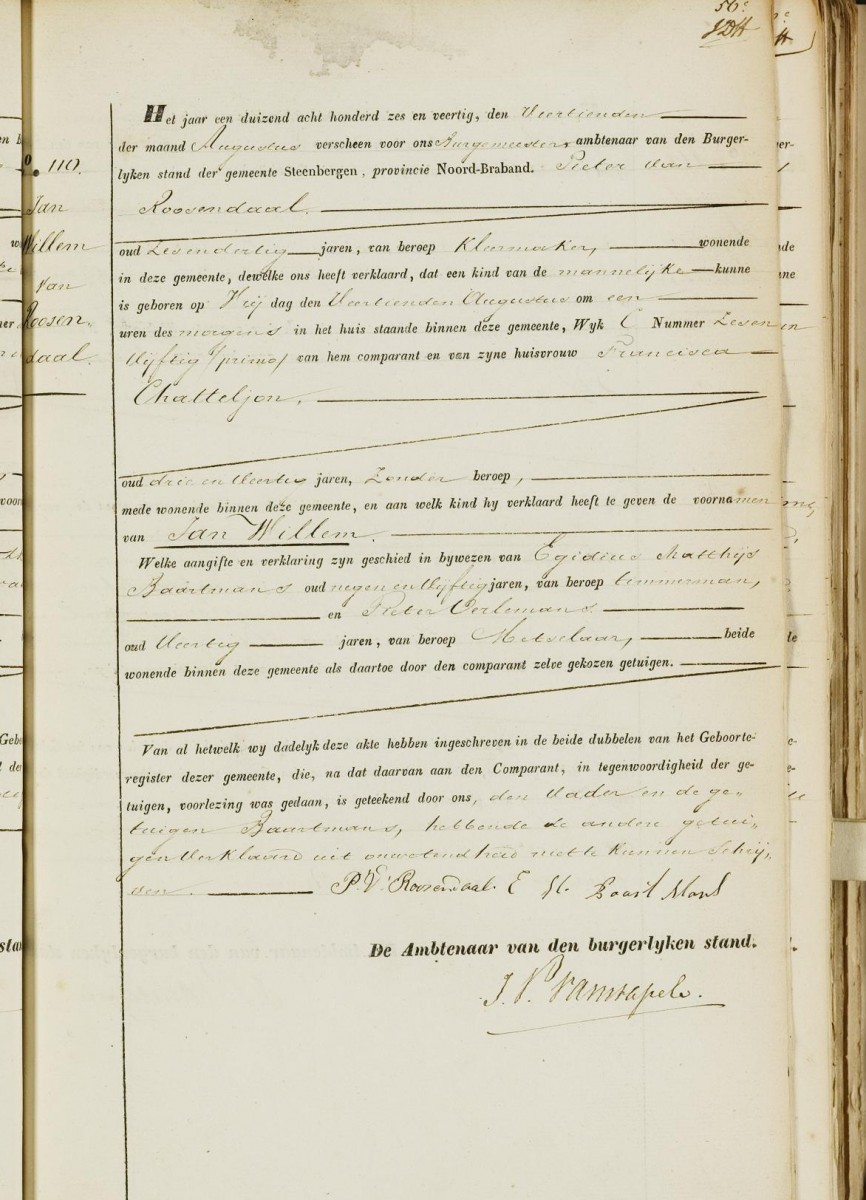 56e
No. 110.
Jan
Willem
Van
Roosen-
daal.
Het jaar een duizend acht honderd zes en veertig, den Veertienden
der maand Augustus verscheen voor ons Burgemeester ambtenaar van den Burger-
lyken stand der gemeente Steenbergen, provincie Noord-Braband. Pieter Van
Roosendaal.
oud Zevendertig jaren, van beroep Kleermaker, wonende
in deze gemeente, dewelke ons heeft verklaard, dat een kind van de mannelijke kunne
is geboren op Vrij dag den Veertienden Augustus om een
uren des morgens in het huis staande binnen deze gemeente, Wyk C Nummer Zeven en
Vijftig /primo/ van hem comparant en van zyne huisvrouw Francisca
Chatteljon,
oud drie en Veertig jaren, Zonder beroep,
mede wonende binnen deze gemeente, en aan welk kind hy verklaard heeft te geven de voornamen
van Jan Willem.
Welke aangifte en verklaring zyn geschied in bywezen van Egidius Matthijs
Baartmans oud negen en Vijftig jaren, van beroep timmerman,
en Pieter Oerlemans
oud Veertig jaren, van beroep Metselaar, beide
wonende binnen deze gemeente als daartoe door den comparant zelve gekozen getuigen.
Van al hetwelk wy dadelyk deze akte hebben ingeschreven in de beide dubbelen van het Geboorte-
register dezer gemeente, die, na dat daarvan aan den Comparant, in tegenwoordigheid der ge-
tuigen, voorlezing was gedaan, is geteekend door ons, den Vader en de ge-
tuigen Baartmans, hebbende de andere getui-
gen Verklaard uit onwetendheid niet te kunnen Schrij-
ven.
P. V. Roosendaal. E M. Baart Mans
De Ambtenaar van den burgerlyken stand.